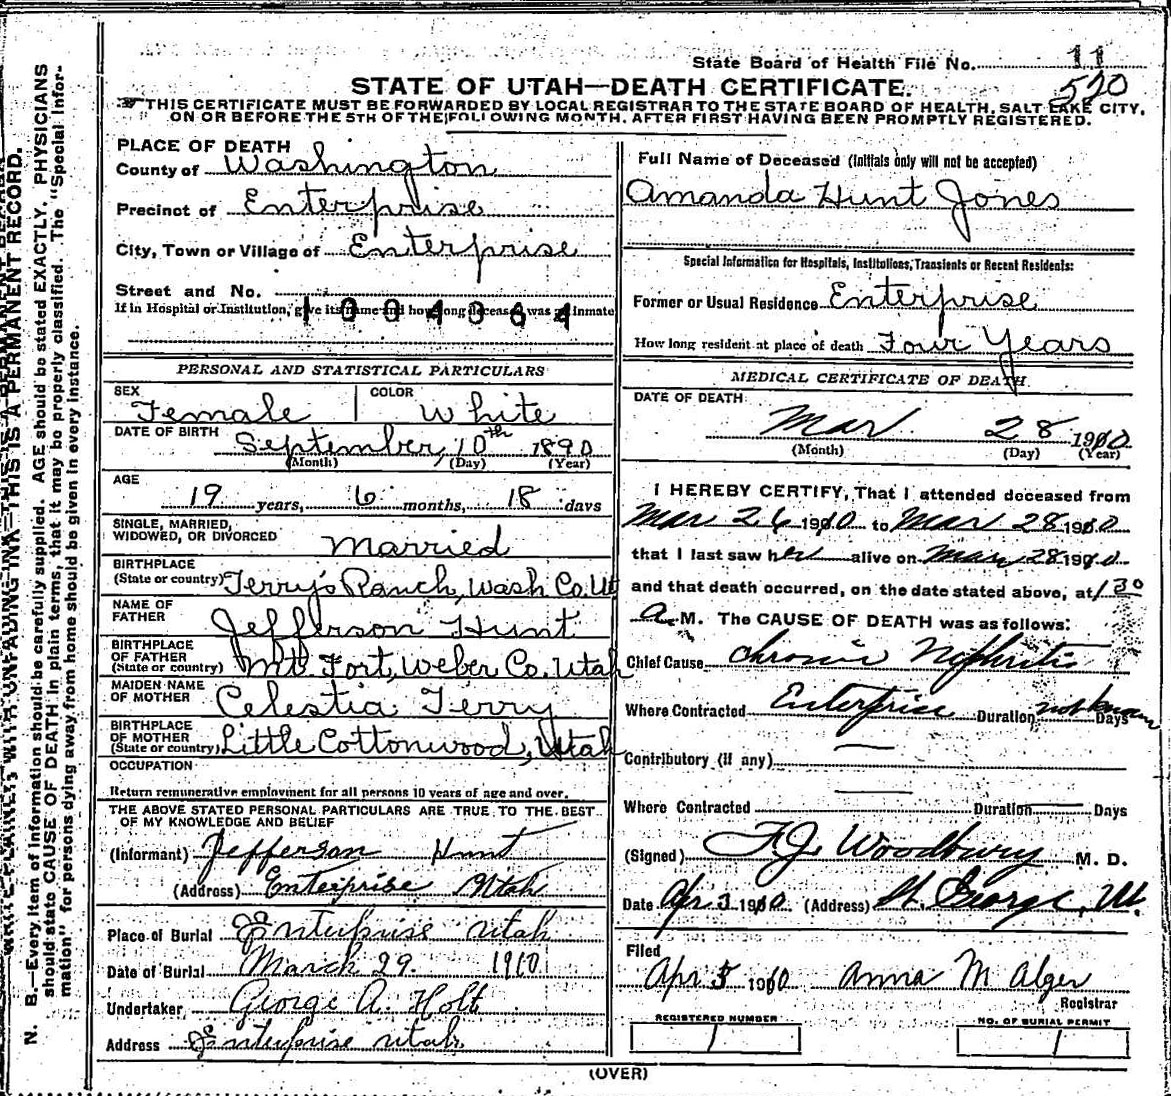 State Board of Health File No. 11
520
STATE OF UTAH—DEATH CERTIFICATE.
THIS CERTIFICATE MUST BE FORWARDED BY LOCAL REGISTRAR TO THE STATE BOARD OF HEALTH, SALT LAKE CITY,
ON OR BEFORE THE 5TH OF THE FOLLOWING MONTH, AFTER FIRST HAVING BEEN PROMPTLY REGISTERED.
PLACE OF DEATH
County of Washington
Precinct of Enterprise
City, Town or Village of Enterprise
Street and No.
If in Hospital or Institution, give its name and how long deceased was an inmate
1004364
PERSONAL AND STATISTICAL PARTICULARS
SEX Female COLOR White
DATE OF BIRTH September 10th 1890
(Month) (Day) (Year)
AGE
19 years, 6 months, 18 days
SINGLE, MARRIED,
WIDOWED, OR DIVORCED Married
BIRTHPLACE
(State or country) Terry's Ranch, Wash Co. Ut
NAME OF
FATHER Jefferson Hunt
BIRTHPLACE
OF FATHER
(State or country) Mt. Fort, Weber Co. Utah
MAIDEN NAME
OF MOTHER Celestia Terry
BIRTHPLACE
OF MOTHER
(State or country) Little Cottonwood, Utah
OCCUPATION
Return remunerative employment for all persons 10 years of age and over.
THE ABOVE STATED PERSONAL PARTICULARS ARE TRUE TO THE BEST
OF MY KNOWLEDGE AND BELIEF
(Informant) Jefferson Hunt
(Address) Enterprise Utah
Place of Burial Enterprise Utah
Date of Burial March 29. 1910
Undertaker, George A. Holt
Address Enterprise Utah
Full Name of Deceased (Initials only will not be accepted)
Amanda Hunt Jones
Special Information for Hospitals, Institutions, Transients or Recent Residents:
Former or Usual Residence Enterprise
How long resident at place of death Four Years
MEDICAL CERTIFICATE OF DEATH
DATE OF DEATH:
Mar 28 1910
(Month) (Day) (Year)
I HEREBY CERTIFY, That I attended deceased from
Mar 26 1910 to Mar 28 1910
that I last saw her alive on Mar 28 1910
and that death occurred, on the date stated above, at 1 30
a. M. The CAUSE OF DEATH was as follows:
Chief Cause chronic Nephritis
Where Contracted Enterprise Duration not known Days
Contributory (if any)
Where Contracted Duration Days
(Signed) F.J. Woodbury M. D.
Date Apr 3 1910 (Address) St. George, Ut.
Filed
Apr 5 1910 Anna M Alger
Registrar
REGISTERED NUMBER
1
NO. OF BURIAL PERMIT
1
(OVER)
WRITE PLAINLY, WITH UNFADING INK—THIS IS A PERMANENT RECORD.
N. B.—Every item of information should be carefully supplied. AGE should be stated EXACTLY. PHYSICIANS
should state CAUSE OF DEATH in plain terms, that it may be properly classified. The "Special Infor-
mation" for persons dying away from home should be given in every instance.